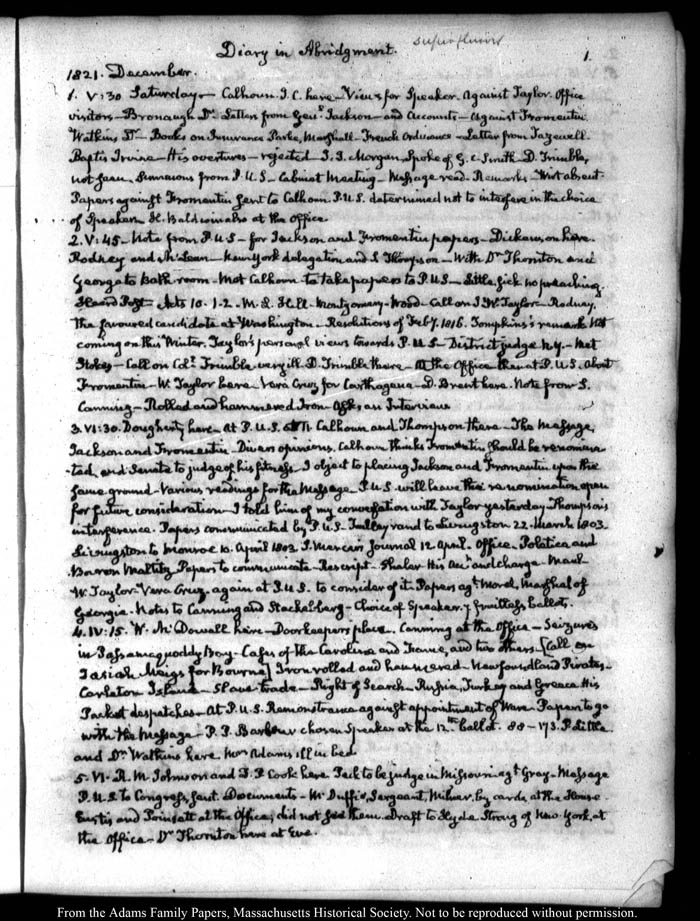 superfluous
Diary in Abridgment. 1.
1821. December.
1. V:30 Saturday — Calhoun J. C. here — Views for Speaker. Against Taylor. Office
visitors — Bronaugh Dr. Letters from Genl. Jackson — and Accounts — Against Fromentin
Watkins Dr. — Books on Insurance Parke, Marshall — French Ordinance — Letter from Tazewell.
Baptis Irvine — His overtures — rejected — Morgan, Spoke of G. C. Smith. D. Trimble,
not seen. Summons from P. U S — Cabinet Meeting — Message read. Remarks — Wirt absent
Papers against Fromentin sent to Calhoun. P. U S. determined not to interfere in the choice
of Speaker. H. Baldwin also at the Office.
2. V:45 — Note from P. U S — for Jackson and Fromentin papers — Dickinson here.
Rodney and McLean — New York delegation and S Thompson — With Dr. Thornton and
George to Bath room — Met Calhoun to take papers to P. U S — Little, sick no preaching.
Heard Post — Acts 10. 1-2. — M. S. Hill — Montgomery — Ward — Call on J W. Taylor — Rodney,
the favoured candidate at Washington — Resolutions of Feby. 1816. Tompkins's remark Not
coming on this Winter. Taylor's personal views towards P. U S — District judge N.Y. — Met
Stokes — Call on Coll. Trimble very ill. D. Trimble there — the Office then at P. U S. About
Fromentin — W. Taylor here. Vera Cruz for Carthagena — D. Brent here. Note from S.
Canning — Rolled and hammered Iron — Asks, an Interview
3. VI:30. Dougherty here — At P. U. S. Calhoun and Thompson there — The Message,
Jackson and Fromentin — Divers opinions. Calhoun thinks Fromentin should be renomina-
-ted, and Senate to judge of his fitness. I object to placing Jackson and Fromentin upon the
same ground — Various readings for the Message — P. U S. will leave the renomination open
for future consideration — I told him of my conversation with Taylor yesterday — Thompson's
interference. Papers communicated by P. U S. Talleyrand to Livingston 22. March 1803.
Livingston to Monroe 10. April 1803. Mercer's Journal 12 April. Office — Poletica and
Baron Maltitz. Papers to communicate — Rescript — Shaler His Acct and Charge
W. Taylor — Vera Cruz — again at P. U S. to consider of it. Papers agt. Morel, Marshal of
Georgia — Notes to Canning and Stackelberg — Choice of Speaker. 7 fruitless ballots.
4. IV:15. W. McDowall here — Doorkeeper's place. Canning at the Office — Seizures
in Passamaquoddy Bay — Cases of the Caroline and Fame, and two others. [Call on
Josiah Meigs for Bourne] Iron rolled and hammered — Newfoundland Pirates —
Carleton Island — Slave trade — Right of Search — Russia, Turkey and Greece. His
Packet despatches — At P. U S. Remonstrance against appointment of Ware. Papers to go
with the Message — P. P. Barbour chosen Speaker at the 12th. ballot. 88 — 173. P. Little
and Dr. Watkins here. Mrs Adams ill in bed.
5. VI. R. M Johnson and D. P. Cook here. Peck to be judge in Missouri — agt. Gray — Message
P. U S. to Congress, sent. Documents — McDuffie, Sergeant, Milnor, by cards, at the House.
Eustis and Poinsett at the Office; did not see them. Draft to Hyde Strong of New York, at
the Office — Dr. Thornton here at Eve.
From the Adams Family Papers, Massachusetts Historical Society. Not to be reproduced without permission.